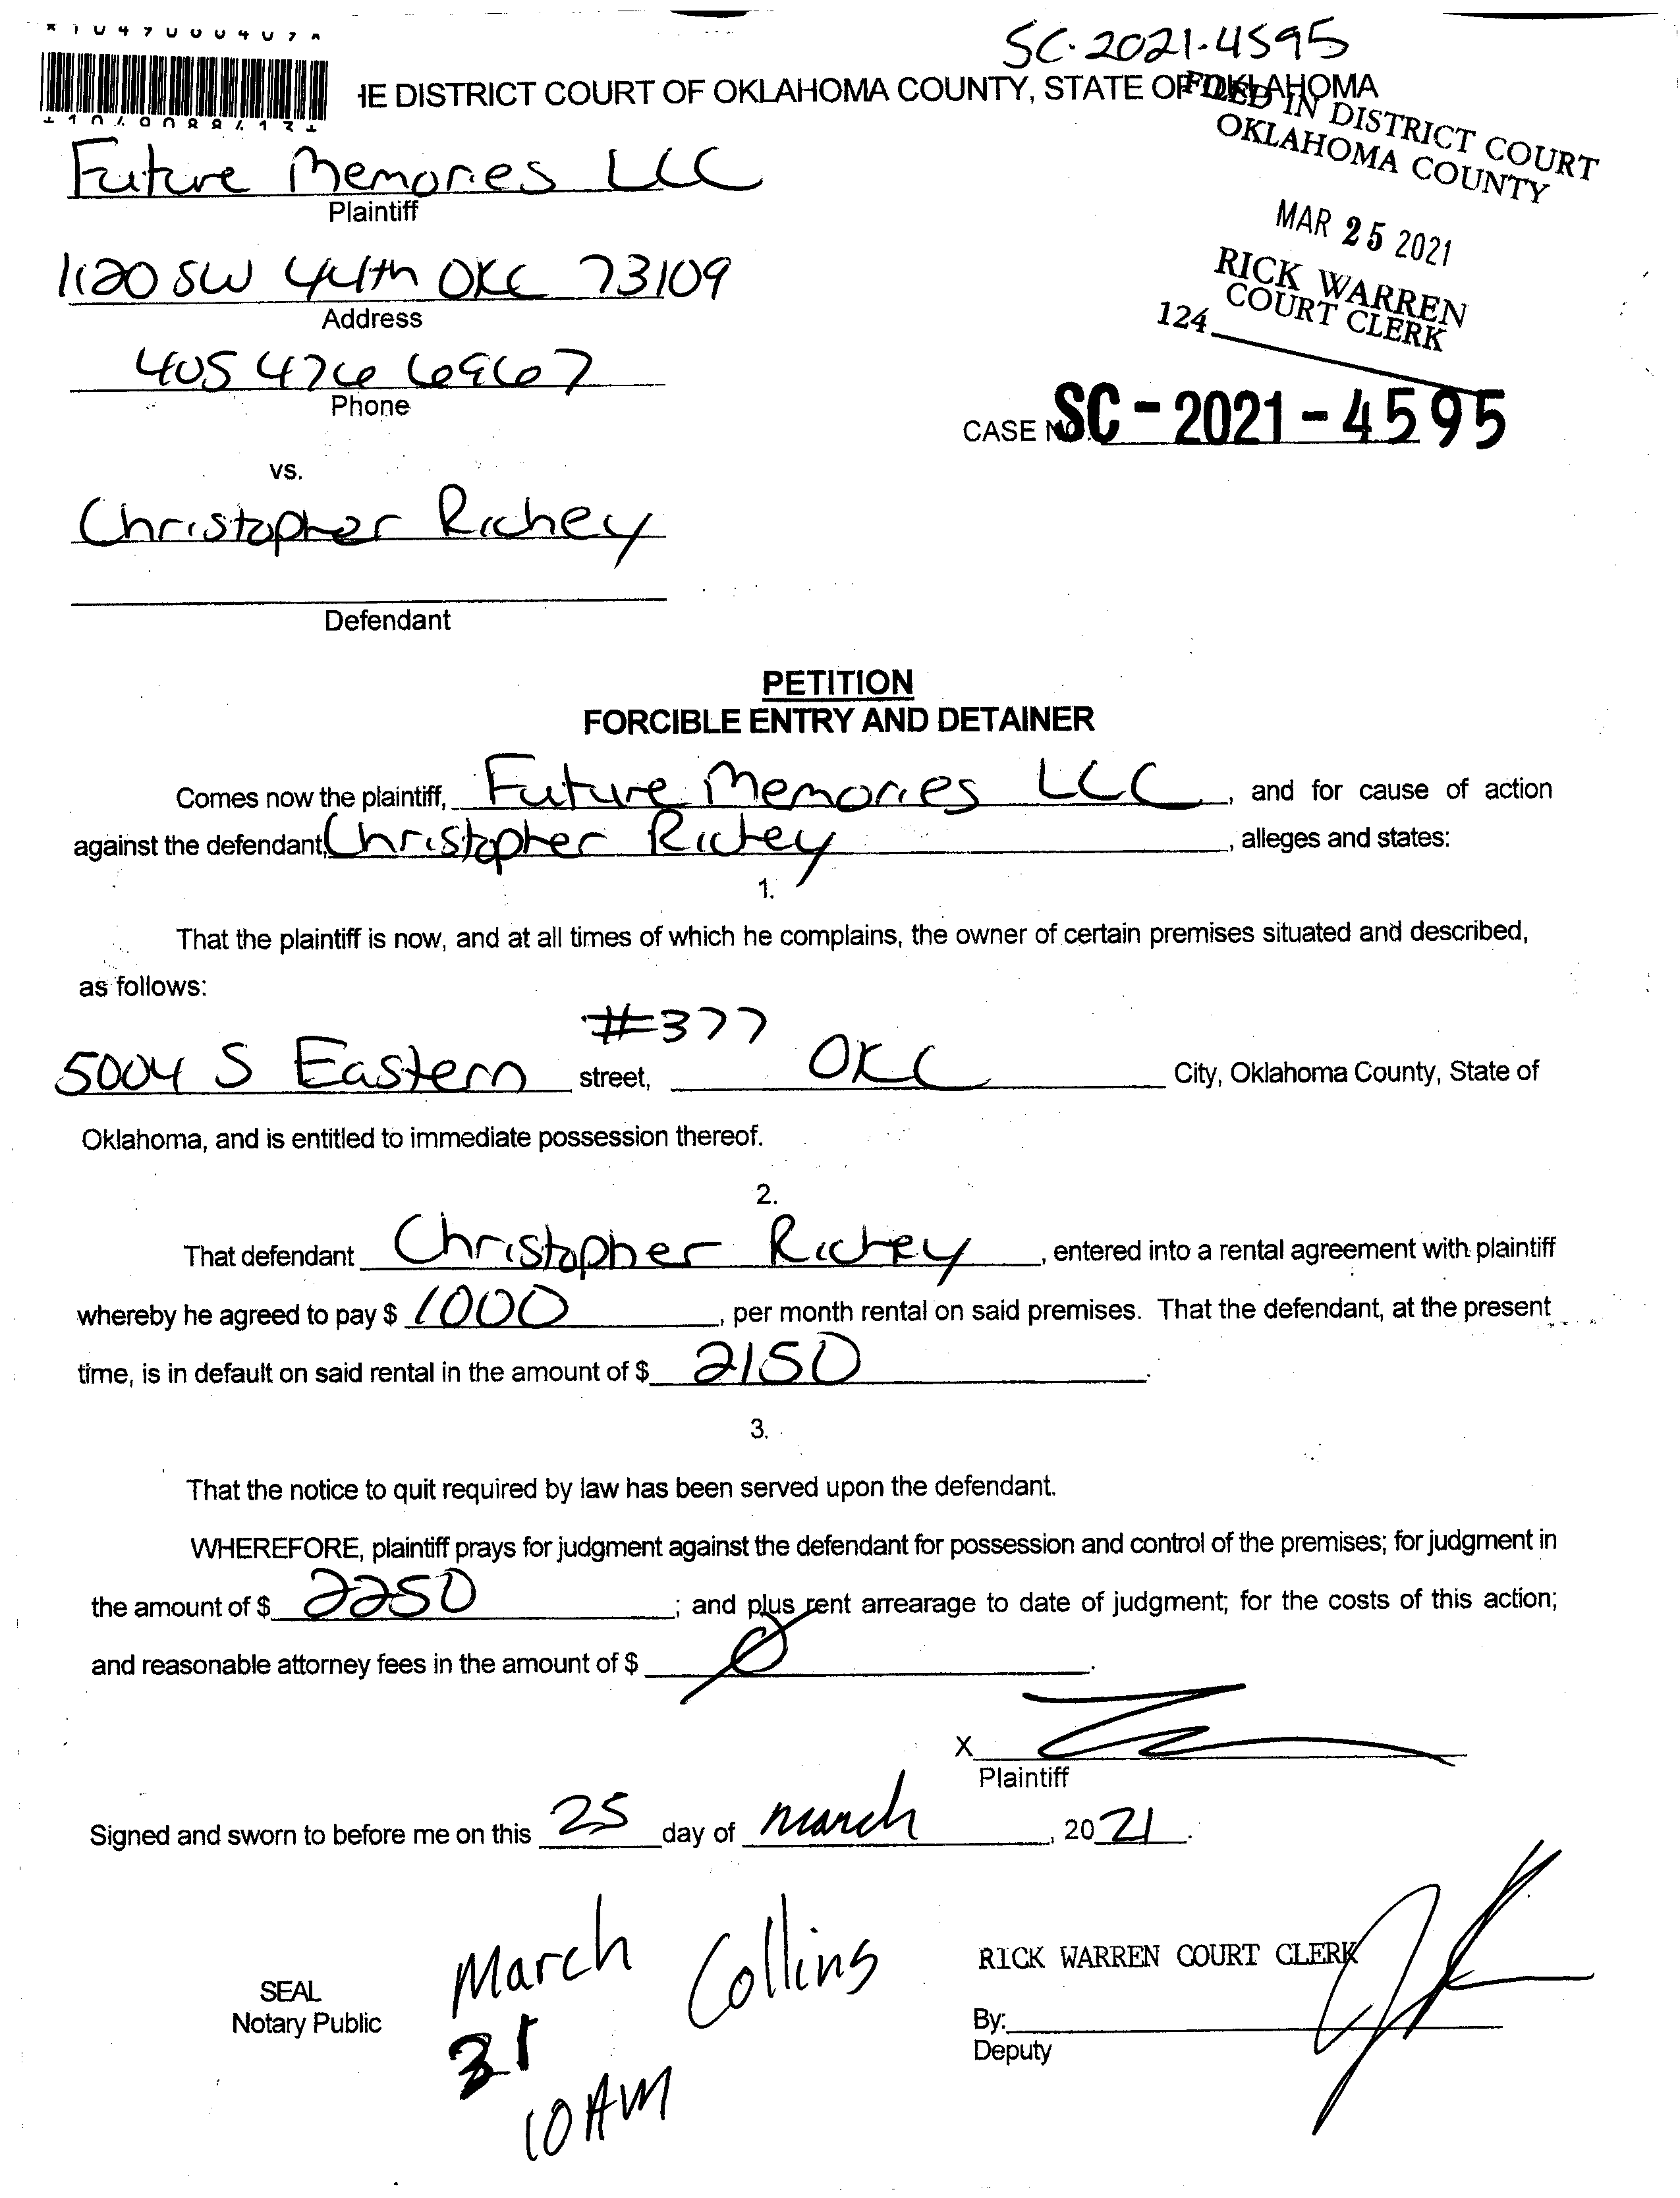 SC-2021-4595
HE DISTRICT COURT OF OKLAHOMA COUNTY, STATE OF OKLAHOMA
FILED IN DISTRICT COURT
OKLAHOMA COUNTY
MAR 25 2021
RICK WARREN
COURT CLERK
124
Future Memories LLC
Plaintiff
1120 SW 44th OKC 73109
Address
405 476 6967
Phone
CASE NO. SC-2021-4595
vs.
Christopher Richey
Defendant
PETITION
FORCIBLE ENTRY AND DETAINER
Comes now the plaintiff, Future Memories LLC, and for cause of action
against the defendant, Christopher Richey, alleges and states:
1.
That the plaintiff is now, and at all times of which he complains, the owner of certain premises situated and described,
as follows:
#377
5004 S Eastern street, OKC City, Oklahoma County, State of
Oklahoma, and is entitled to immediate possession thereof.
2.
That defendant Christopher Richey, entered into a rental agreement with plaintiff
whereby he agreed to pay $ 1000, per month rental on said premises. That the defendant, at the present
time, is in default on said rental in the amount of $ 2150.
3.
That the notice to quit required by law has been served upon the defendant.
WHEREFORE, plaintiff prays for judgment against the defendant for possession and control of the premises; for judgment in
the amount of $ 2250; and plus rent arrearage to date of judgment; for the costs of this action;
and reasonable attorney fees in the amount of $ Ø.
X
Plaintiff
Signed and sworn to before me on this 25 day of march, 2021.
March Collins
31
10 AM
SEAL
Notary Public
RICK WARREN COURT CLERK
By:
Deputy